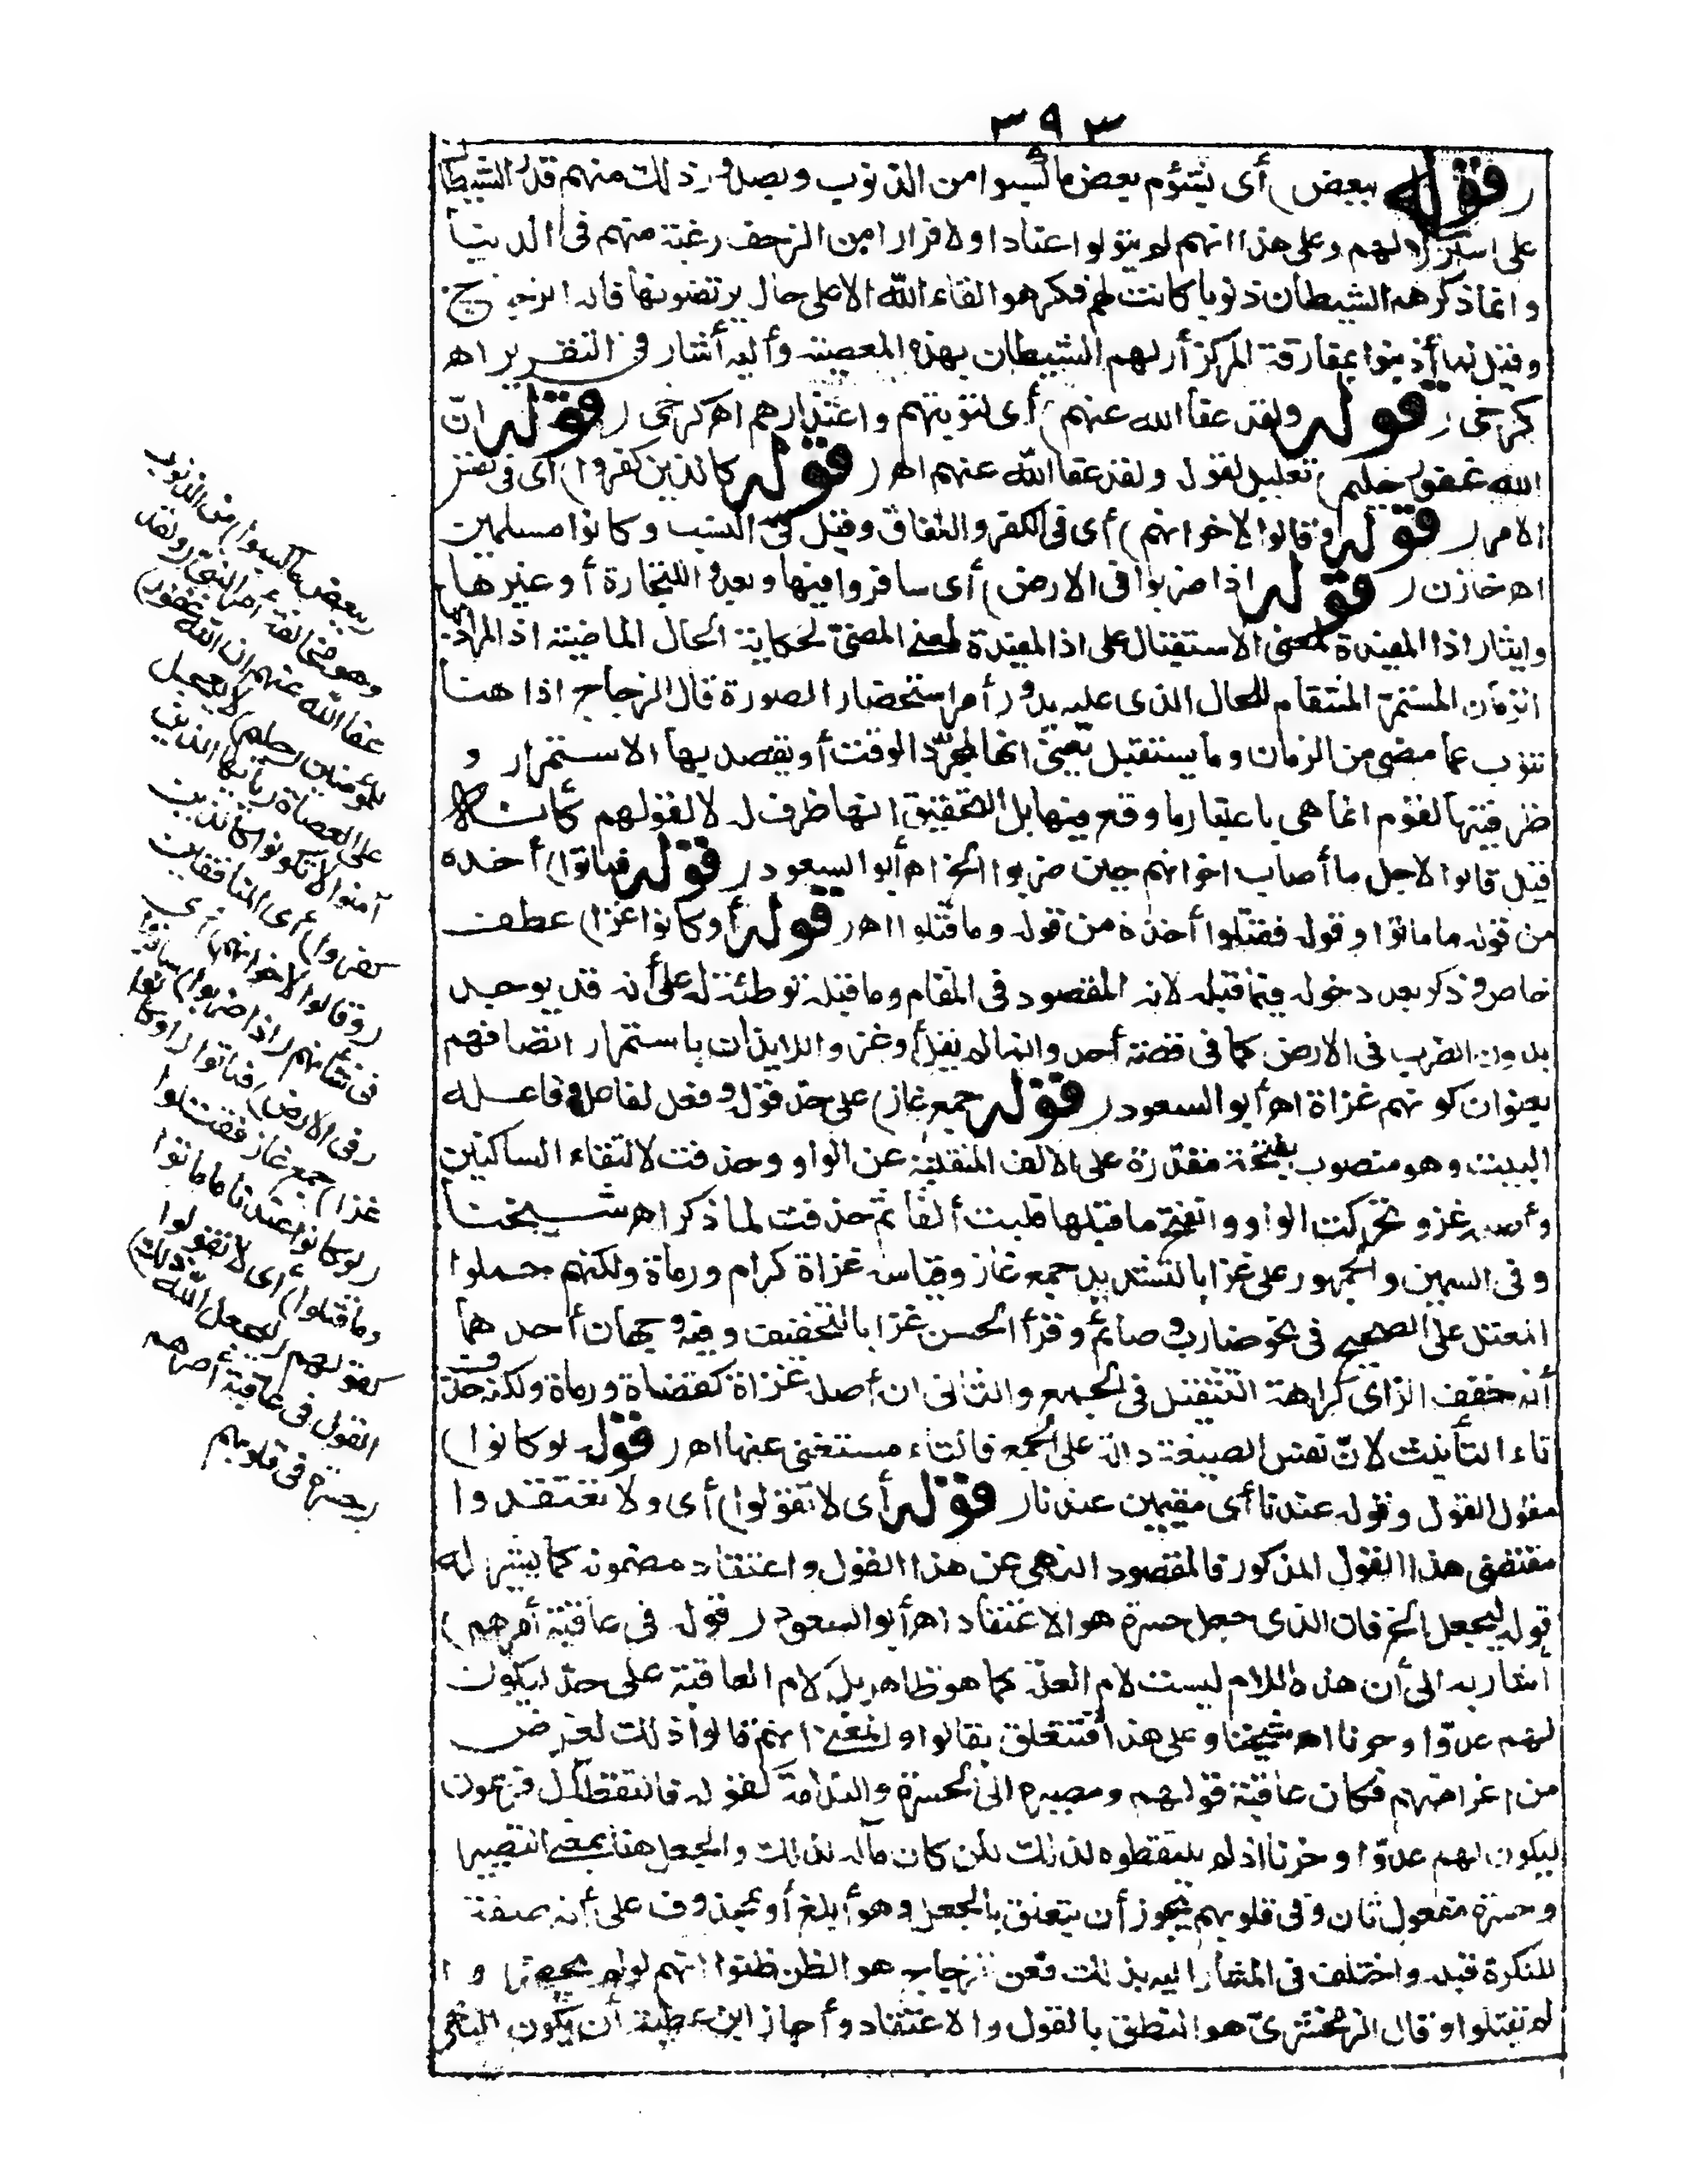 ٣٩٣
(قوله ببعض) أى بشؤم بعض ما كسبوا من الذنوب وبصدور ذلك منهم قدر الشيطان
على استزلالهم وعلى هذا انهم لم يتولوا عنادا ولا فرارا من الزحف رغبة منهم فى الدنيا
وانما ذكرهم الشيطان ذنوبا كانت لهم فكرهوا لقاء الله الا على حال يرتضونها قاله الزجاج
وقيل لما أذنبوا بمفارقة المركز أزلهم الشيطان بهذه المعصية وأليه أشار فى التقرير اه
كرخى (قوله ولقد عفا الله عنهم) أى لتوبتهم واعتذارهم اه كرخى (قوله انّ
الله غفور حليم) تعليل لقوله ولقد عفا الله عنهم اه (قوله كالذين كفروا) أى فى نفس
الامر (قوله وقالوا لاخوانهم) أى فى الكفر والنفاق وقيل فى النسب وكانوا مسلمين
اه خازن (قوله اذا ضربوا فى الارض) أى سافروا فيها وبعدوا للتجارة أو غيرها
وايثار اذا المفيدة لمعنى الاستقبال على اذ المفيدة لمعنى المضىّ لحكاية الحال الماضية اذ المراد بها
الزمان المستمرّ المنتظم للحال الذى عليه يدور أمر استحضار الصورة قال الزجاج اذا هنا
تنوب عما مضى من الزمان وما يستقبل يعنى انها لمجرّد الوقت أو يقصد بها الاستمرار و
ظرفيتها لقولهم انما هى باعتبار ما وقع فيها بل التحقيق انها ظرف له لا لقولهم كأنه
قيل قالوا لاجل ما أصاب اخوانهم حين ضربوا الخ اه أبو السعود (قوله فماتوا) أخذه
من قوله ما ماتوا وقوله فقتلوا أخذه من قوله وما قتلوا اه (قوله أو كانوا غزا) عطف
خاص وذكر بعد دخوله فيما قبله لانه المقصود فى المقام وما قبله توطئة له على أنه قد يوجد
بدون الضرب فى الارض كما فى قصة أحد وانما لم يقل أو غزوا للايذان باستمرار اتصافهم
بعنوان كونهم غزاة اه أبو السعود (قوله جمع غاز) على حدّ قوله وفعل لفاعل وفاعله
البيت وهو منصوب بفتحة مقدّرة على الالف المنقلبة عن الواو وحذفت لالتقاء الساكنين
وأصله غزو تحركت الواو وانفتح ما قبلها قلبت ألفا ثم حذفت لما ذكر اه شيخنا
وفى السمين والجمهور على غزا بالتشديد جمع غاز وقياسه غزاة كرام ورماة ولكنهم حملوا
المعتل على الصحيح فى نحو ضارب وصائم وقرأ الحسن غزا بالتخفيف وفيه وجهان أحدهما
أنه خفف الزاى كراهة التثقيل فى الجمع والثانى ان أصله غزاة كقضاة ورماة ولكنه حذفت
تاء التأنيث لانّ نفس الصيغة دالة على الجمع فالتاء مستغنى عنها اه (قوله لو كانوا)
مقول القول وقوله عندنا أى مقيمين عندنا (قوله أى لا تقولوا) أى ولا تعتقدوا
مقتضى هذا القول المذكور فالمقصود النهى عن هذا القول واعتقاد مضمونه كما يشير له
قوله ليجعل الخ فان الذى جعل حسرة هو الاعتقاد اه أبو السعود (قوله فى عاقبة أمرهم)
أشار به الى أن هذه اللام ليست لام العلة كما هو ظاهر بل لام العاقبة على حدّ ليكون
لهم عدوّا وحزنا اه شيخنا وعلى هذا فتتعلق بقالوا والمعنى انهم قالوا ذلك لغرض
من اغراضهم فكان عاقبة قولهم ومصيره الى الحسرة والندامة كقوله فالتقطه آل فرعون
ليكون لهم عدوّا وحزنا اذ لم يلتقطوه لذلك لكن كان مآله لذلك والجعل هنا بمعنى التصيير
وحسرة مفعول ثان وفى قلوبهم يجوز أن يتعلق بالجعل وهو أبلغ أو بمحذوف على أنه صفة
للنكرة قبله واختلف فى المشار اليه بذلك فعن الزجاج هو الظن ظنوا انهم لو لم يحضروا
لم يقتلوا وقال الزمخشرىّ هو النطق بالقول والاعتقاد وأجاز ابن عطية أن يكون النهى
(ببعض ما كسبوا) من الذنوب
وهو مخالفة أمر النبىّ (ولقد
عفا الله عنهم ان الله غفور)
للمؤمنين (حليم) لا يعجل
على العصاة (يأيها الذين
آمنوا لا تكونوا كالذين
كفروا) أى المنافقين
(وقالوا لاخوانهم) أى
فى شأنهم (اذا ضربوا) سافروا
(فى الارض) فماتوا (أو كانوا
غزا) جمع غاز فقتلوا
(لو كانوا عندنا ما ماتوا
وما قتلوا) أى لا تقولوا
كقولهم (ليجعل الله ذلك)
القول فى عاقبة أمرهم
(حسرة فى قلوبهم